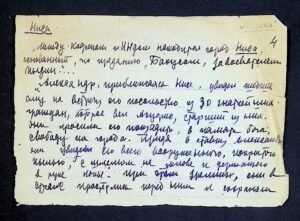 Ниса
4
Между Кофеном и Индом находился город Ниса
основанный, по преданию, Бахусом, завоевателем
Индии...
Александр, приблизившись Нисе, увидел
ему на встречу его посольство из 30 знатнейших
граждан, которые вел Акуфис, старший из них.
Они просили его пощадить, в память бога,
свободу их города. Придя в ставку,
увидев его всего вооруженного, покрытого
с шлемом на и держащего
в руке копье. При этом они в
страхе простерлись перед ним и сохраняли